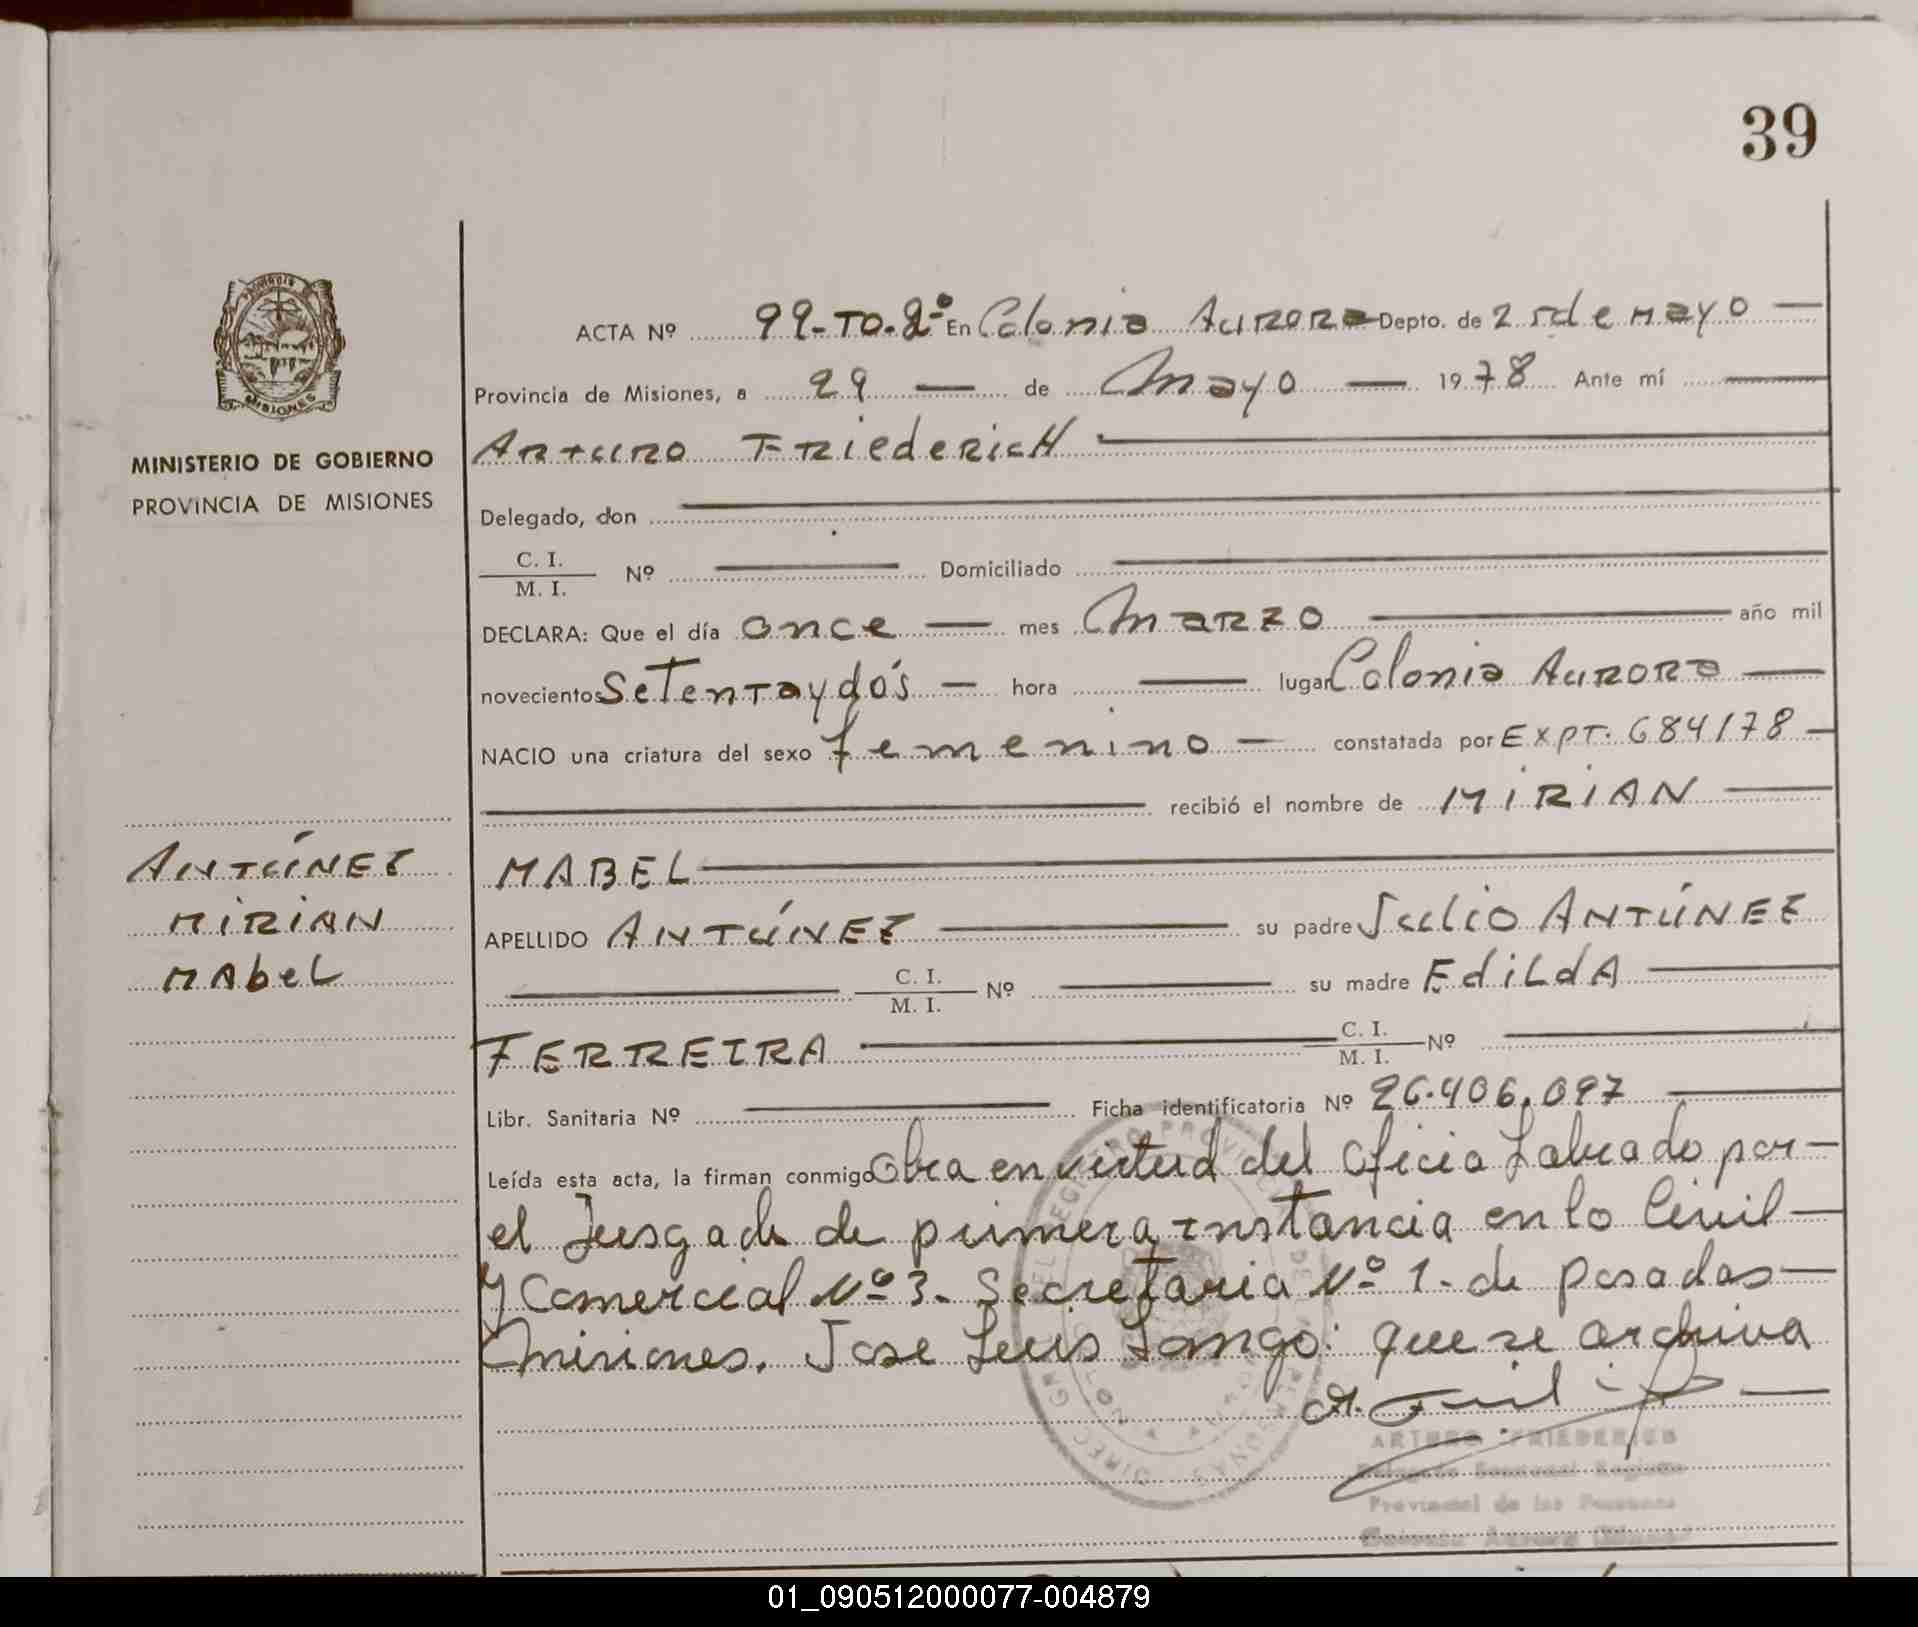 39
ACTA Nº 99-TO.2º En Colonia Aurora Depto. de 25 de mayo
Provincia de Misiones, a 29 de Mayo 1978 Ante mí
ARTURO FRiedericH
MINISTERIO DE GOBIERNO
PROVINCIA DE MISIONES
Delegado, don
C. I.
M. I. Nº Domiciliado
DECLARA: Que el día once mes Marzo año mil
novecientos Setentaydós hora lugar Colonia Aurora
NACIO una criatura del sexo femenino constatada por Expt. 684/78
recibió el nombre de MIRIAN
ANTÚNEZ
MIRIAN
MAbeL
MABEL
APELLIDO ANTÚNEZ su padre Julio ANTÚNEZ
C. I.
M. I. Nº su madre EdiLdA
FERREIRA C. I.
M. I. Nº
Libr. Sanitaria Nº Ficha identificatoria Nº 26.406.097
Leída esta acta, la firman conmigo Obra en virtud del Oficio Labrado por
el Jusgado de primera instancia en lo Civil
y Comercial Nº 3. Secretaria Nº 1. de posadas
Misiones. Jose Luis Longo: que se archiva
ARTURO FRIEDERICH
Provincial de las Personas
01_090512000077-004879